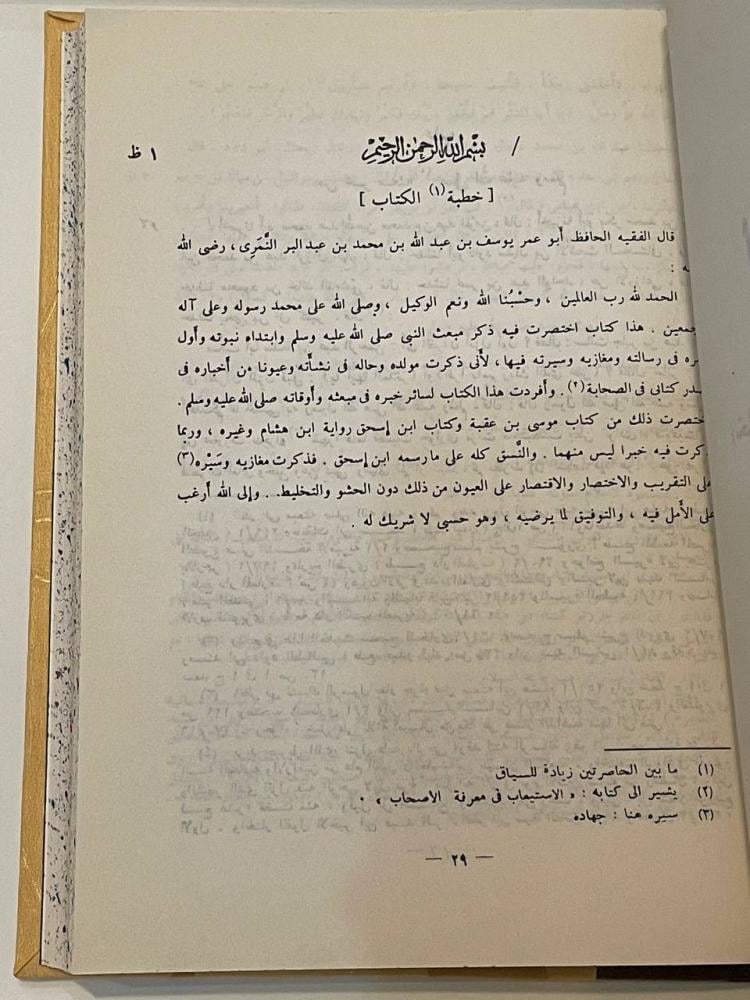 / بسم الله الرحمن الرحيم ١ ظ
[ خطبة (١) الكتاب ]
قال الفقيه الحافظ أبو عمر يوسف بن عبد الله بن محمد بن عبد البر النَّمَرِى ، رضى الله
ـه :
الحمد لله رب العالمين ، وحَسْبُنا الله ونعم الوكيل ، وصلى الله على محمد رسوله وعلى آله
جمعين . هذا كتاب اختصرت فيه ذكر مبعث النبى صلى الله عليه وسلم وابتداء نبوته وأول
ـره فى رسالته ومغازيه وسيرته فيها ، لأنى ذكرت مولده وحاله فى نشأته وعيونا من أخباره فى
ـدر كتابى فى الصحابة (٢) . وأفردت هذا الكتاب لسائر خبره فى مبعثه وأوقاته صلى الله عليه وسلم .
ختصرت ذلك من كتاب موسى بن عقبة وكتاب ابن إسحق رواية ابن هشام وغيره ، وربما
كرت فيه خبرا ليس منهما . والنَّسق كله على ما رسمه ابن إسحق . فذكرت مغازيه وسَيْره (٣)
على التقريب والاختصار والاقتصار على العيون من ذلك دون الحشو والتخليط . وإلى الله أرغب
على الأمل فيه ، والتوفيق لما يرضيه ، وهو حسبى لا شريك له .
(١) ما بين الحاصرتين زيادة للسياق
(٢) يشير الى كتابه : « الاستيعاب فى معرفة الاصحاب » .
(٣) سيره هنا : جهاده
— ٢٩ —